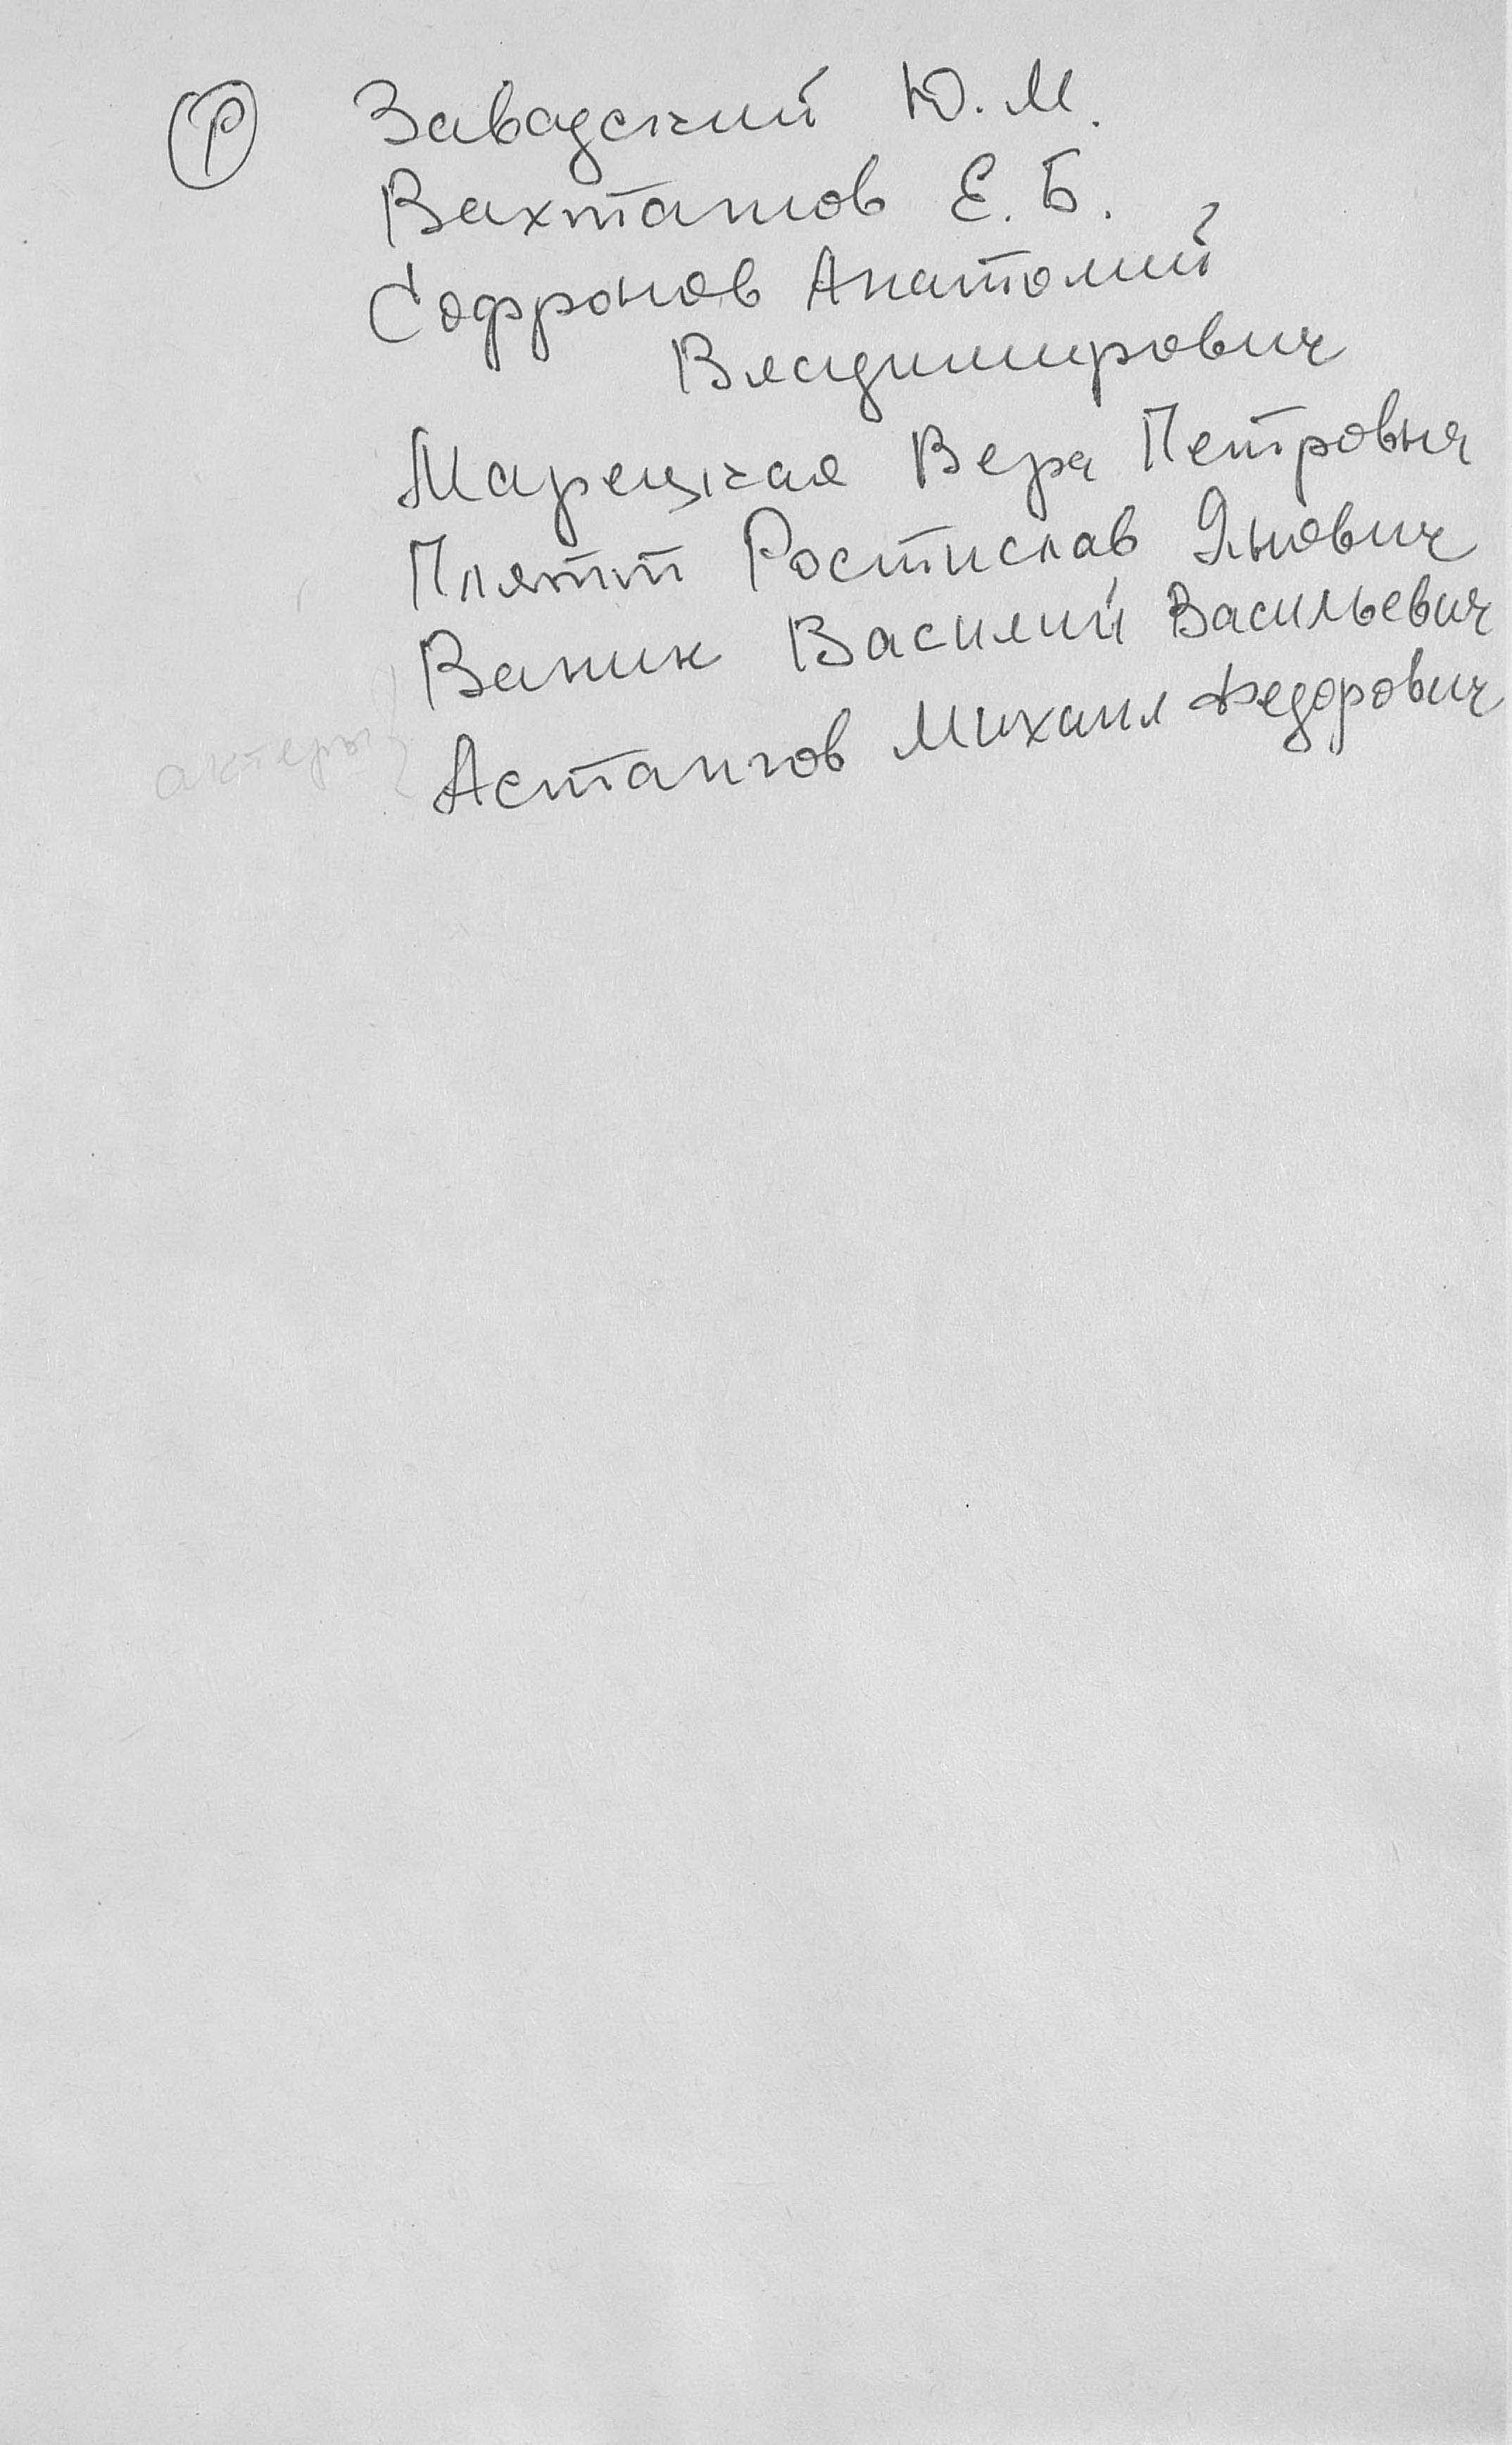 Р Завадский Ю. М.
Вахтангов Е. Б.
Софронов Анатолий
Владимирович
Марецкая Вера Петровна
Плятт Ростислав Янович
Ванин Василий Васильевич
актеры
Астангов Михаил Федорович